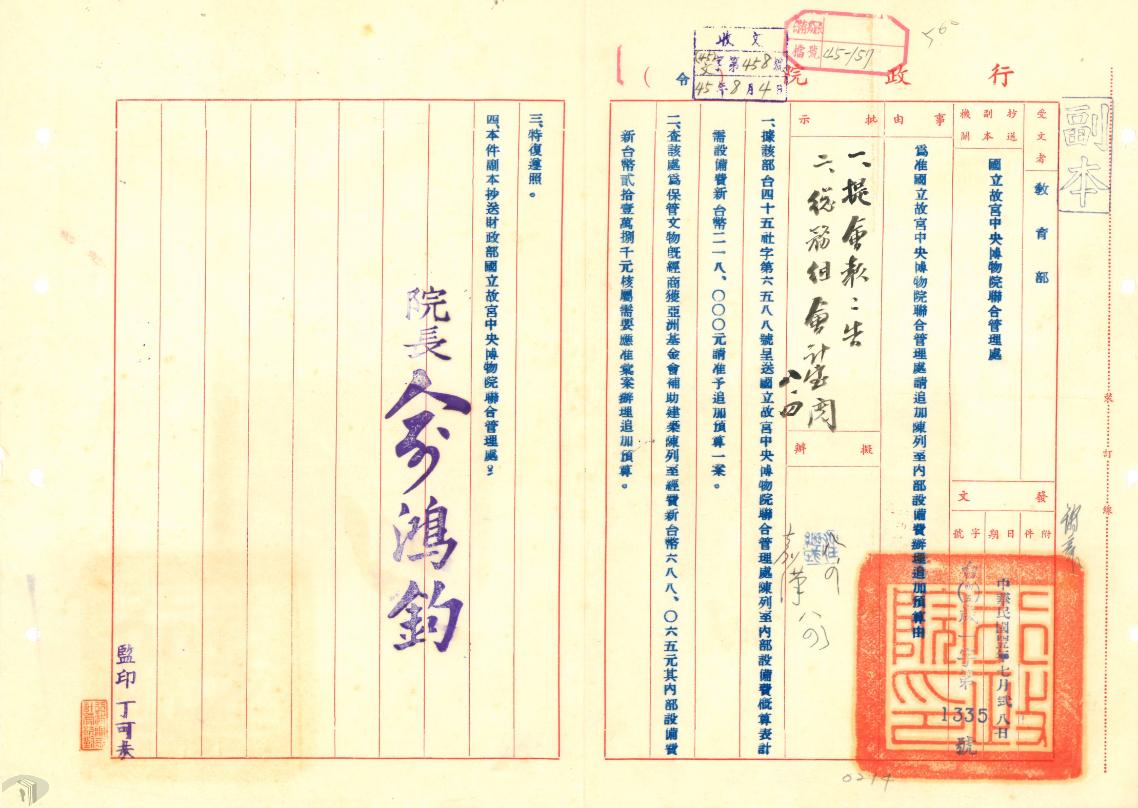 副本
行政院(令)
檔號 45-157
收文
(45)文字第458號
45年8月4日
56
受文者
教育部
抄送副本機關
國立故宮中央博物院聯合管理處
發文
附件
日期
字號
中華民國四五年七月弍八日
1335號
裝訂線
事由
為准國立故宮中央博物院聯合管理處請追加陳列室內部設備費辦理追加預算由
批示
一、提會報報告
二、總務組會計室閱
八、四
擬辦
一、據該部台四十五社字第六五八八號呈送國立故宮中央博物院聯合管理處陳列室內部設備費概算表計
需設備費新台幣二一八、〇〇〇元請准予追加預算一案。
二、查該處為保管文物既經商獲亞洲基金會補助建築陳列室經費新台幣六八八、〇六五元其內部設備費
新台幣貳拾壹萬捌千元核屬需要應准彙案辦理追加預算。
三、特復遵照。
四、本件副本抄送財政部國立故宮中央博物院聯合管理處。
院長俞鴻鈞
監印
0214